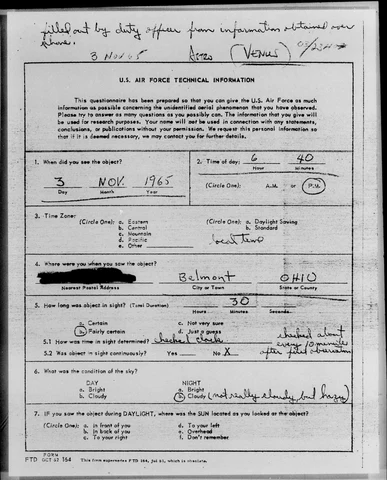 filled out by duty officer from information obtained over
phone.
3 Nov 65 Astro (VENUS)
U.S. AIR FORCE TECHNICAL INFORMATION
This questionnaire has been prepared so that you can give the U.S. Air Force as much
information as possible concerning the unidentified aerial phenomenon that you have observed.
Please try to answer as many questions as you possibly can. The information that you give will
be used for research purposes. Your name will not be used in connection with any statements,
conclusions, or publications without your permission. We request this personal information so
that if it is deemed necessary, we may contact you for further details.
1. When did you see the object?
3 NOV. 1965
Day Month Year
2. Time of day: 6 40
Hour Minutes
(Circle One): A.M. or P.M.
3. Time Zone:
(Circle One): a. Eastern
b. Central
c. Mountain
d. Pacific
e. Other
(Circle One): a. Daylight Saving
b. Standard
local time
4. Where were you when you saw the object?
Belmont OHIO
Nearest Postal Address City or Town State or County
5. How long was object in sight? (Total Duration) 30
Hours Minutes Seconds
a. Certain c. Not very sure
b. Fairly certain d. Just a guess
5.1 How was time in sight determined? checked clock
checked about
every 10 minute
after first observation
5.2 Was object in sight continuously? Yes No X
6. What was the condition of the sky?
DAY NIGHT
a. Bright a. Bright
b. Cloudy b. Cloudy (not really cloudy, but hazy)
7. IF you saw the object during DAYLIGHT, where was the SUN located as you looked at the object?
(Circle One): a. In front of you d. To your left
b. In back of you e. Overhead
c. To your right f. Don't remember
FTD FORM OCT 62 164 This form supersedes FTD 164, Jul 61, which is obsolete.